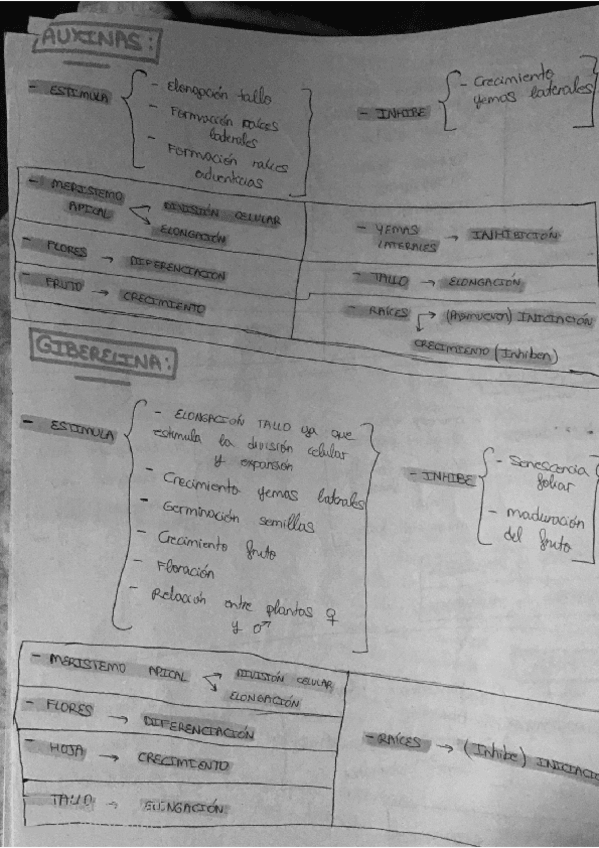 AUXINAS:
- ESTIMULA
- Elongación tallo
- Formación raíces
laterales
- Formación raíces
adventicias
- INHIBE
- Crecimiento
yemas laterales
- MERISTEMO
APICAL
DIVISIÓN CELULAR
ELONGACIÓN
- FLORES → DIFERENCIACIÓN
- FRUTO → CRECIMIENTO
- YEMAS
LATERALES → INHIBICIÓN
- TALLO → ELONGACIÓN
- RAÍCES → (Promueven) INICIACIÓN
CRECIMIENTO (Inhiben)
GIBERELINA:
- ESTIMULA
- ELONGACIÓN TALLO ya que
estimula la división celular
y expansión
- Crecimiento yemas laterales
- Germinación semillas
- Crecimiento fruto
- Floración
- Relación entre plantas ♀
y ♂
- INHIBE
- Senescencia
foliar
- maduración
del fruto
- MERISTEMO APICAL
DIVISIÓN CELULAR
ELONGACIÓN
- FLORES → DIFERENCIACIÓN
- HOJA → CRECIMIENTO
TALLO → ELONGACIÓN
- RAÍCES → (Inhibe) INICIACI